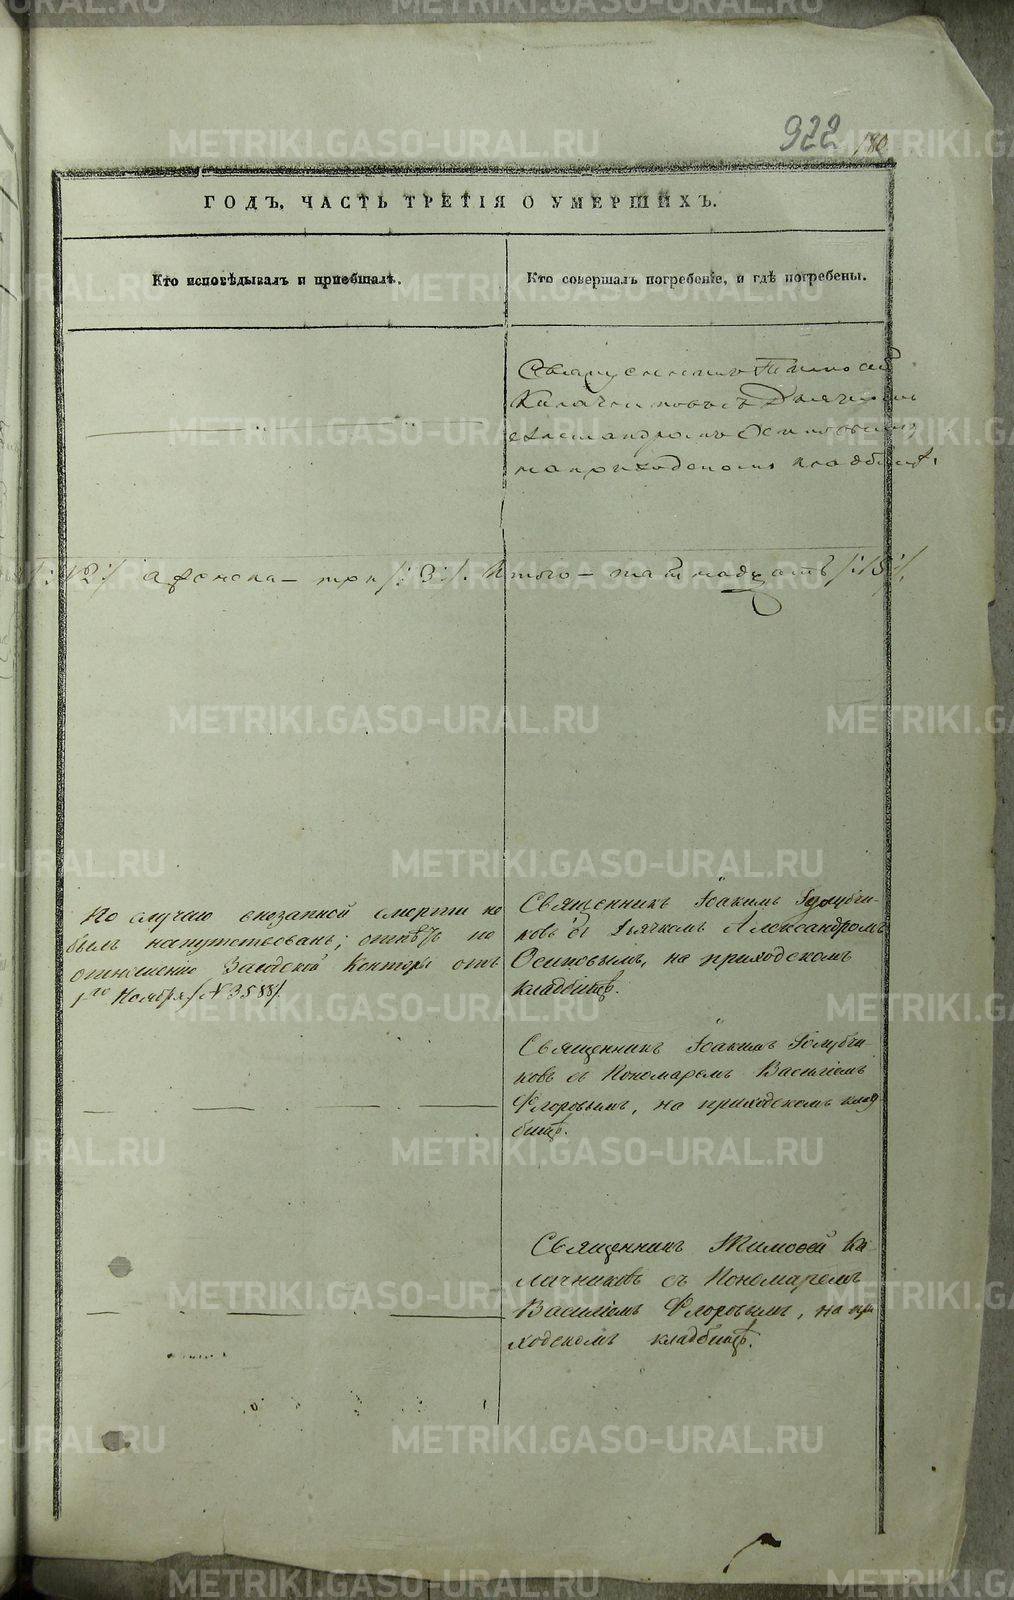 922
180
ГОДЪ, ЧАСТЬ ТРЕТІЯ О УМЕРШИХЪ.
Кто исповѣдывалъ и пріобщалъ.
Кто совершалъ погребеніе, и гдѣ погребены.
Священникъ Тимоѳей
Калачниковъ съ Дьячкомъ
Александромъ Осиповымъ
на приходскомъ кладбищѣ.
/:12:/ а женска – три /:3:/. Итого – пятнадцать /:15:/.
По случаю внезапной смерти не
былъ напутствованъ; отпѣтъ по
отношенію Заводской Конторы отъ
1го Ноября /№3588/.
Священникъ Іоакимъ Голубчи-
ковъ съ Дьячкомъ Александромъ
Осиповымъ, на приходскомъ
кладбищѣ.
Священникъ Іоакимъ Голубчи-
ковъ съ Пономаремъ Василіемъ
Флоровымъ, на приходскомъ клад
бищѣ.
Священникъ Тимоѳей Ка-
лачниковъ съ Пономаремъ
Василіемъ Флоровымъ, на при
ходскомъ кладбищѣ.
METRIKI.GASO-URAL.RU